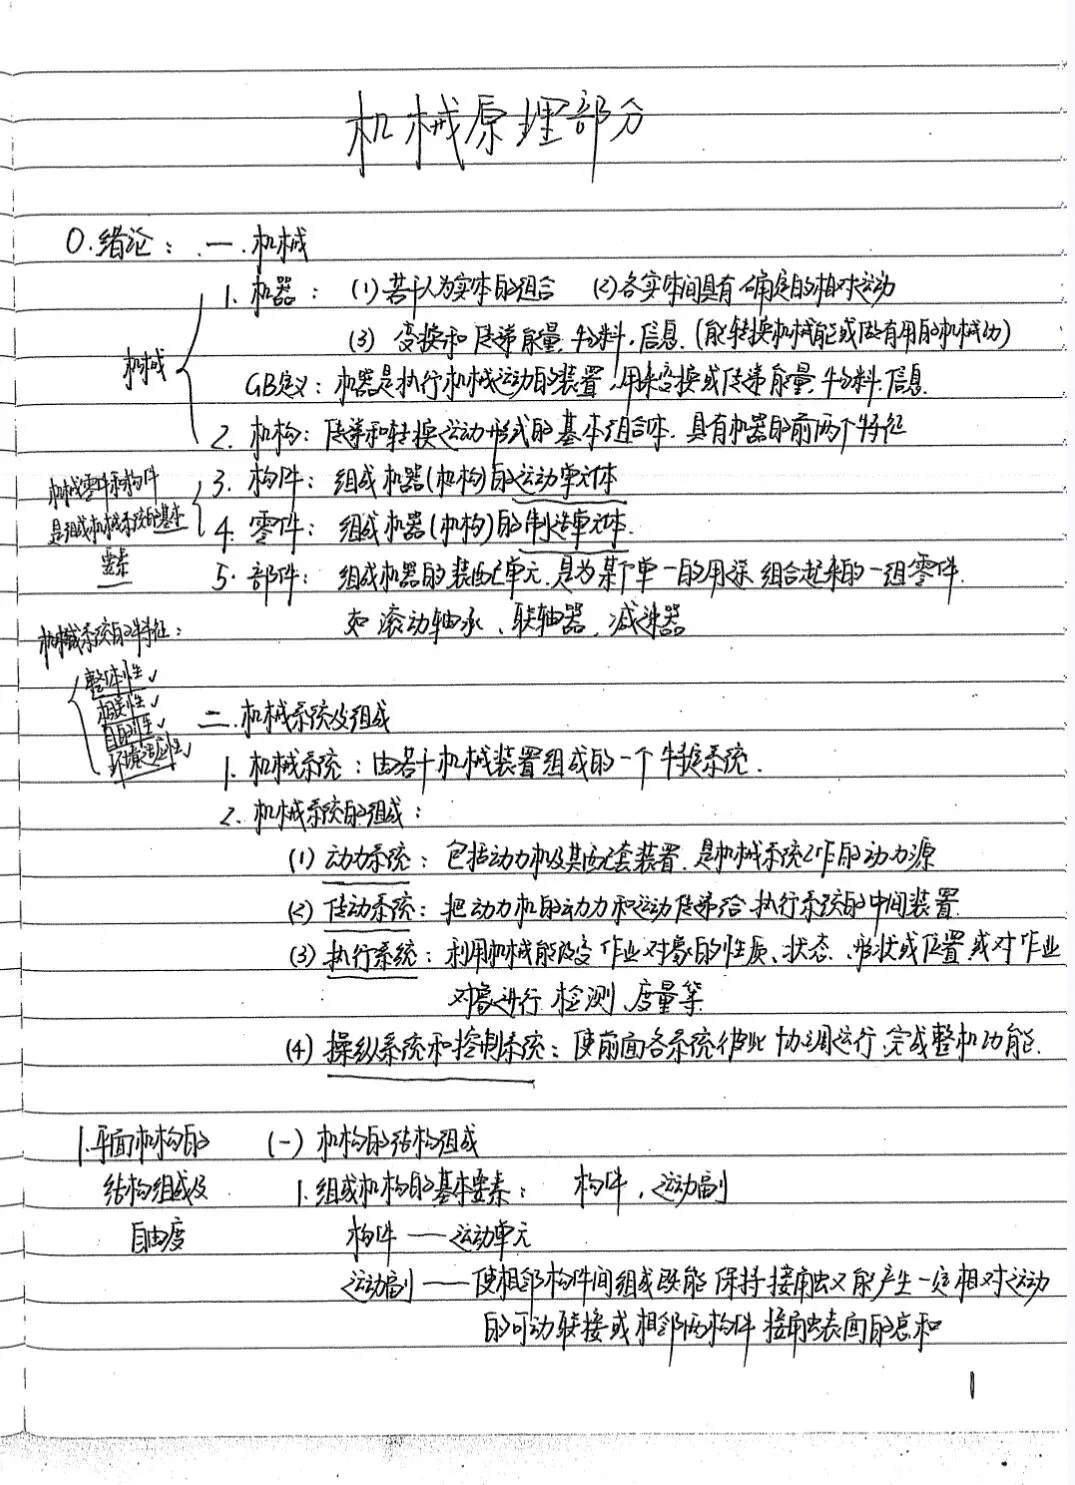 机械原理部分
0.绪论： 一.机械
1. 机器： (1)若干人为实体的组合 (2)各实体间具有确定的相对运动
(3) 变换和传递能量、物料、信息.(能转换机械能或做有用的机械功)
机械
GB定义：机器是执行机械运动的装置，用来变换或传递能量、物料、信息.
2. 机构：传递和转换运动形式的基本组合体，具有机器的前两个特征
机械零件和构件
是组成机械系统的基本
要素
3. 构件：组成机器(机构)的运动单元体
4. 零件：组成机器(机构)的制造单元体.
5. 部件：组成机器的装配单元，是为某个单一的用途组合起来的一组零件.
如 滚动轴承、联轴器、减速器
机械系统的特征：
整体性✓
相关性✓
目的性✓
环境适应性✓
二.机械系统及组成
1. 机械系统：由若干机械装置组成的一个特定系统.
2. 机械系统的组成：
(1) 动力系统：包括动力机及其配套装置，是机械系统工作的动力源
(2) 传动系统：把动力机的动力和运动传递给执行系统的中间装置.
(3) 执行系统：利用机械能改变作业对象的性质、状态、形状或位置，或对作业
对象进行检测、度量等
(4) 操纵系统和控制系统：使前面各系统彼此协调运行，完成整机功能.
1.平面机构的
结构组成及
自由度
(一) 机构的结构组成
1.组成机构的基本要素： 构件，运动副
构件——运动单元
运动副——使相邻构件间组成既能保持接触又能产生一定相对运动
的可动联接或相邻两构件接触表面的总和
1